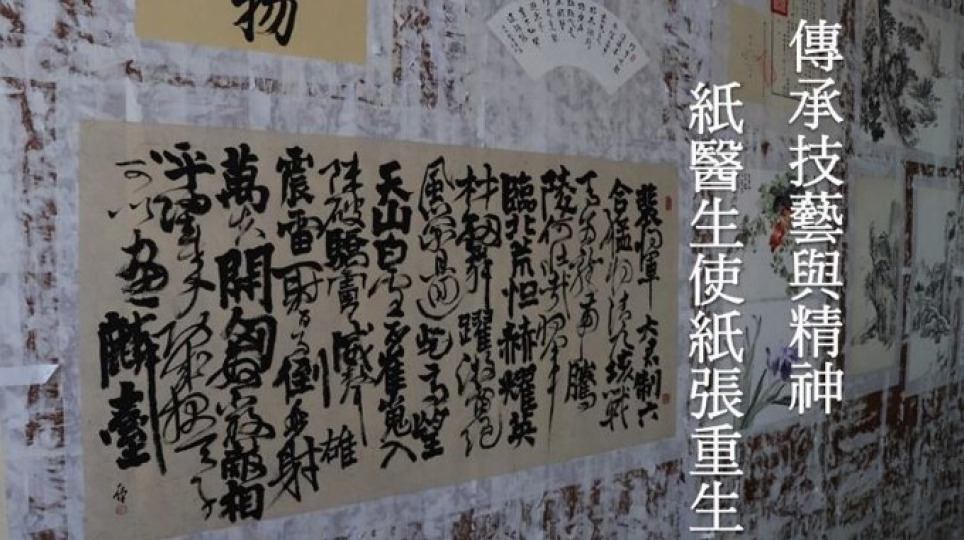 傳承技藝與精神
紙醫生使紙張重生
揚
裴將軍 大君制六
合猛將清九垓戰
馬若龍虎騰
陵何壯哉將軍
臨北荒怛赫耀英
材劍舞躍游電隨
風縈且迴登高望
天山白雲正崔嵬入
陣破驕虜威聲雄
震雷一射百馬倒再射
萬夫開匈奴不敢敵相
呼歸去來功成報天子
可以畫麟臺